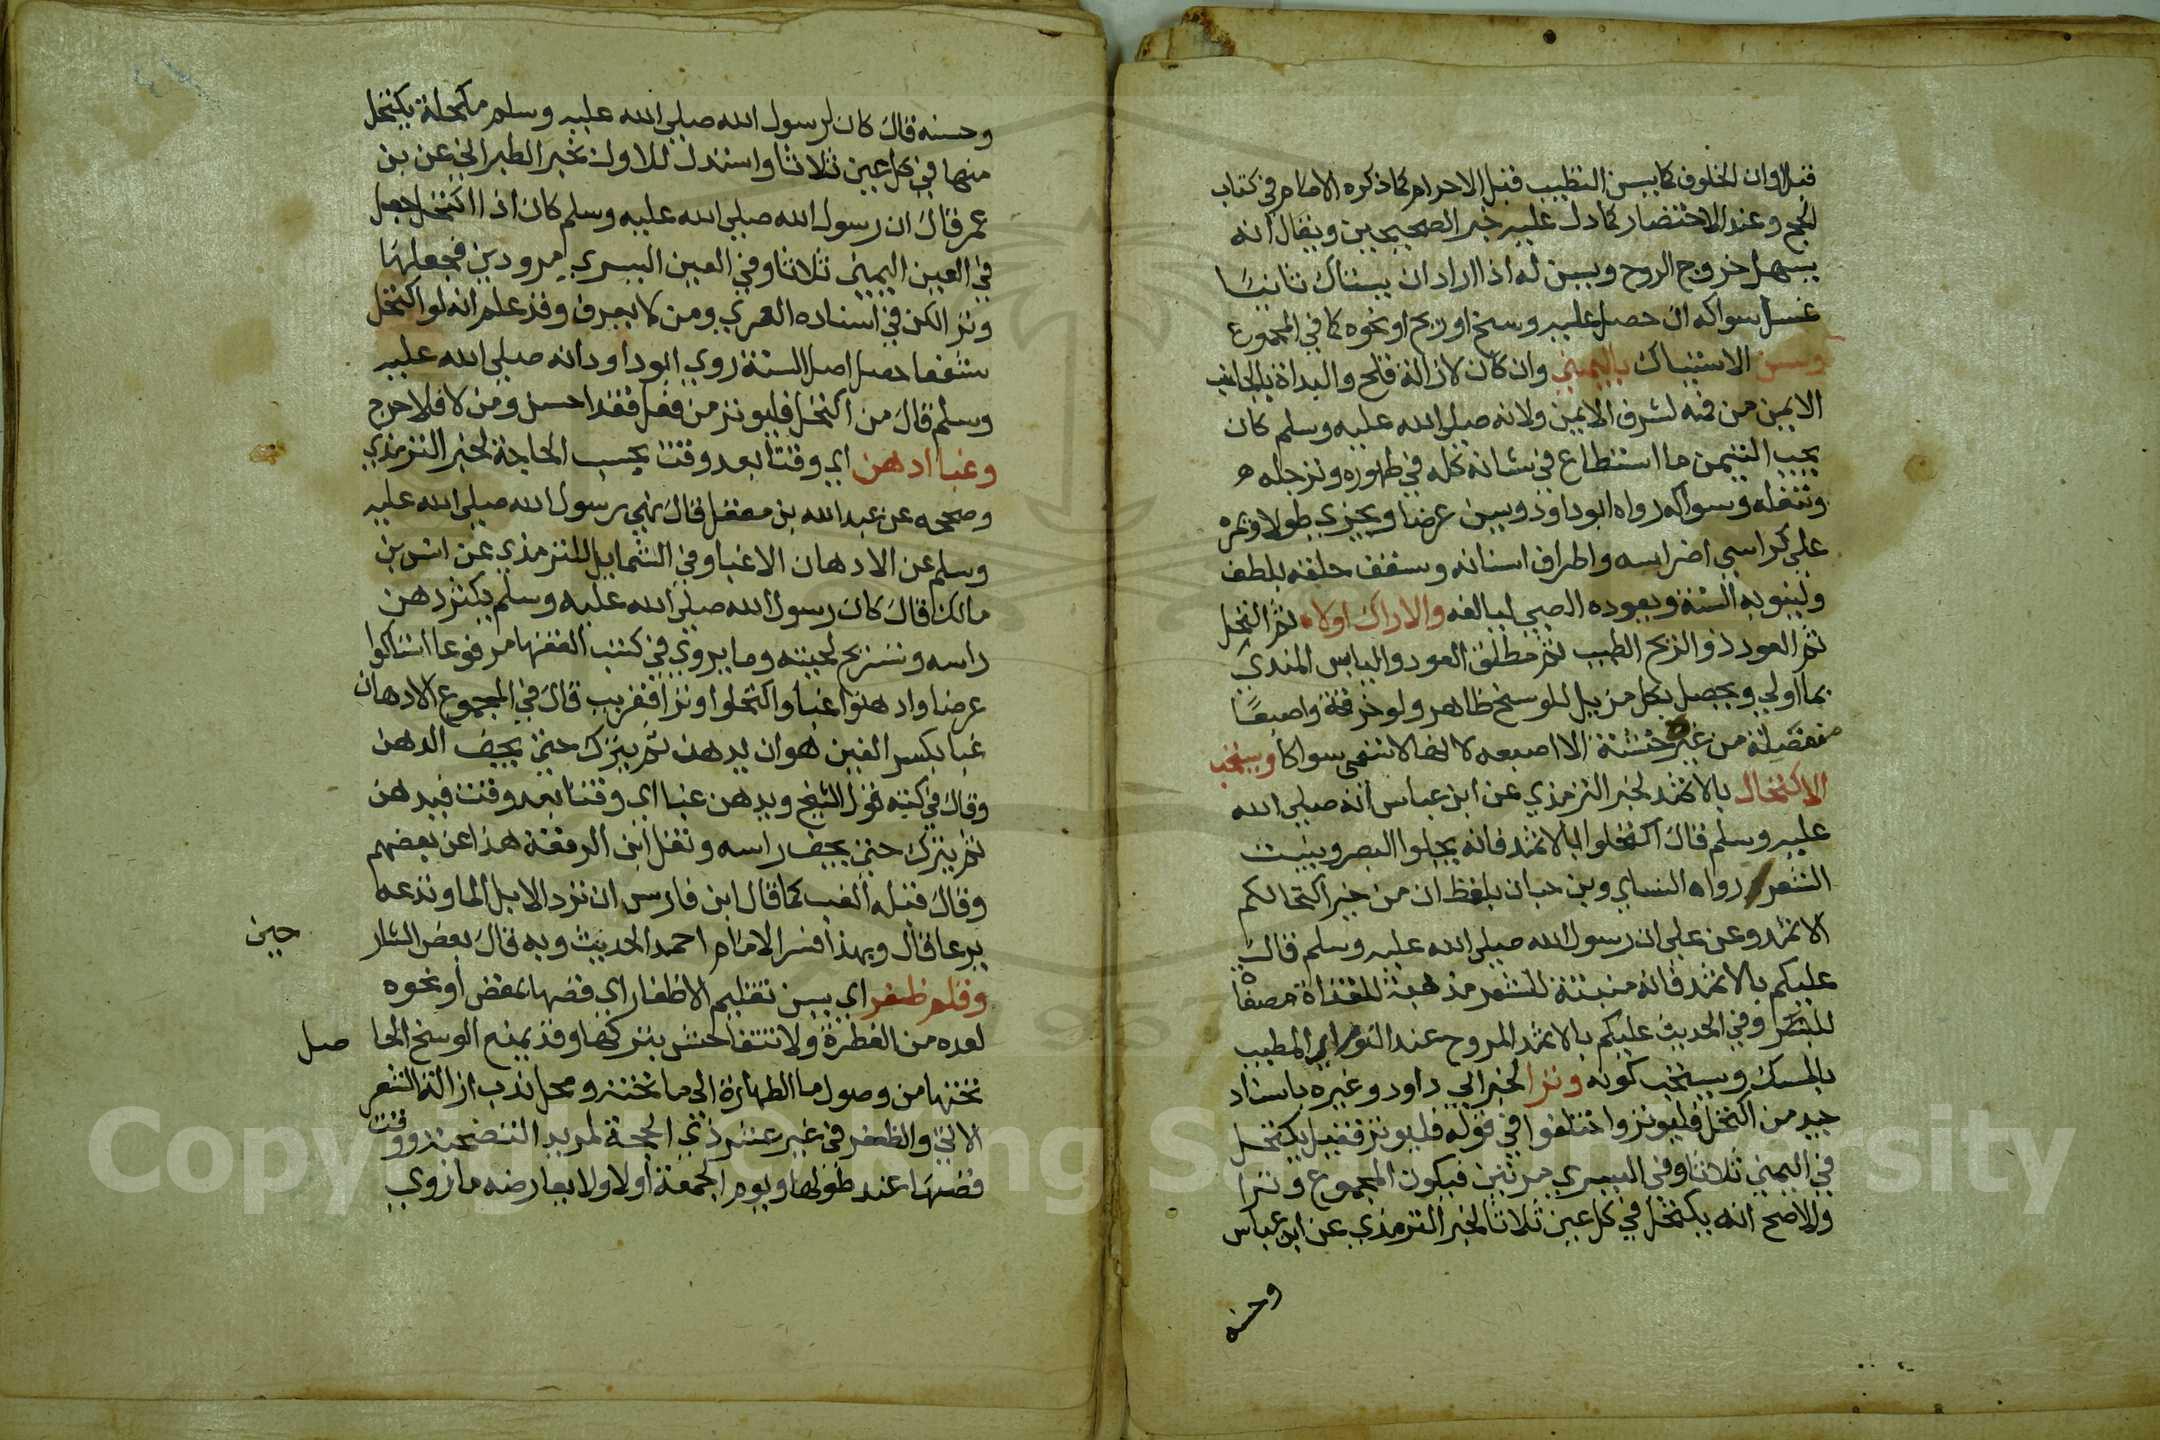 قبل اوان الخلوف كما يسن التطيب قبل الاحرام كما ذكره الامام في كتاب
الحج وعند الاحتضار كما دل عليه خبر الصحيحين ويقال انه
يسهل خروج الروح ويسن له اذا اراد ان يستاك ثانيا
غسل سواكه ان حصل عليه وسخ او ريح او نحوه كما في المجموع
ويسن الاستياك باليمنى وان كان لازالة قلح والبداة بالجانب
الايمن من فمه لشرف الايمن ولانه صلى الله عليه وسلم كان
يحب التيمن ما استطاع في شانه كله في طهوره وترجله
وتنعله وسواكه رواه ابو داود ويسن عرضا ويجزي طولا ويمره
على كراسي اضراسه واطراف اسنانه وسقف حلقه بلطف
ولينو به السنة ويعوده الصبي ليالفه والاراك اولا ثم النخل
ثم العود ذو الريح الطيب ثم مطلق العود واليابس المندى
بماء اولى ويحصل بكل مزيل للوسخ طاهر ولو خرقة واصبعا
منفصلة من غير خشنة الا اصبعه لانها لا تسمى سواكا ويستحب
الاكتحال بالاثمد لخبر الترمذي عن ابن عباس انه صلى الله
عليه وسلم قال اكتحلوا بالاثمد فانه يجلوا البصر وينبت
الشعر رواه النساي وبن حبان بلفظ ان من خير اكتحالكم
الاثمد وعن علي ان رسول الله صلى الله عليه وسلم قال
عليكم بالاثمد فانه منبتة للشعر مذهبة للقذاة مصفاة
للبصر وفي الحديث عليكم بالاثمد المروح عند النوم اي المطيب
بالمسك ويستحب كونه وترا لخبر ابي داود وغيره باسناد
جيد من اكتحل فليوتر واختلفوا في قوله فليوتر فقيل يكتحل
في اليمنى ثلاثا وفي اليسرى مرتين فيكون المجموع وترا
والاصح انه يكتحل في كل عين ثلاثا لخبر الترمذي عن ابن عباس
وحسنه
وحسنه قال كان لرسول الله صلى الله عليه وسلم مكحلة يكتحل
منها في كل عين ثلاثا واستدل للاول بخبر الطبراني عن بن
عمر قال ان رسول الله صلى الله عليه وسلم كان اذا اكتحل جعل
في العين اليمنى ثلاثا وفي العين اليسرى مرودين فجعلها
وترا لكن في اسناده العمري ومن لا يعرف وقد علم انه لو اكتحل
شفعا حصل اصل السنة روى ابو داود انه صلى الله عليه
وسلم قال من اكتحل فليوتر من فعل فقد احسن ومن لا فلا حرج
وغبا ادهن اي وقتا بعد وقت بحسب الحاجة لخبر الترمذي
وصححه عن عبد الله بن مغفل قال نهى رسول الله صلى الله عليه
وسلم عن الادهان الا غبا وفي الشمايل للترمذي عن انس بن
مالك قال كان رسول الله صلى الله عليه وسلم يكثر دهن
راسه وتسريح لحيته وما يروي في كتب الفقها مرفوعا استاكوا
عرضا وادهنوا غبا واكتحلوا وترا فغريب قال في المجموع الادهان
غبا بكسر الغين هو ان يدهن ثم يترك حتى يجف الدهن
وقال في كتبه قول الشيخ ويدهن غبا اي وقتا بعد وقت فيدهن
ثم يترك حتى يجف راسه ونقل ابن الرفعة هذا عن بعضهم
وقال قبله الغب كما قال ابن فارس ان ترد الابل الما وتدعه
يوما قال وبهذا فسر الامام احمد الحديث وبه قال بعض الشار
حين
وقلم ظفر اي يسن تقليم الاظفار اي قصها بمقص او نحوه
لعده من الفطرة ولا تتفاحش بتركها وقد يمنع الوسخ الحا
صل
تحتها من وصول ما الطهارة الى ما تحته ومحل ندب ازالة الشعر
الاتي والظفر في غير عشر ذي الحجة لمريد التضحية ووقت
قصها عند طولها ويوم الجمعة اولا ولا يعارضه ما روي
Copyright © King Saud University